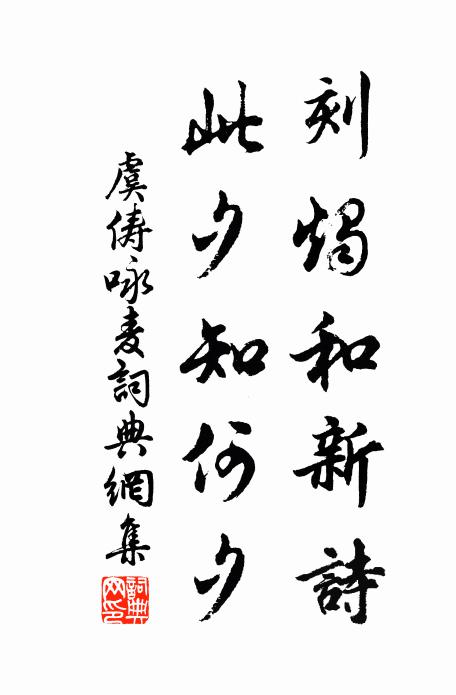 刻燭和新詩
此夕知何夕
虞儔咏麦詞典網集
詞典网印